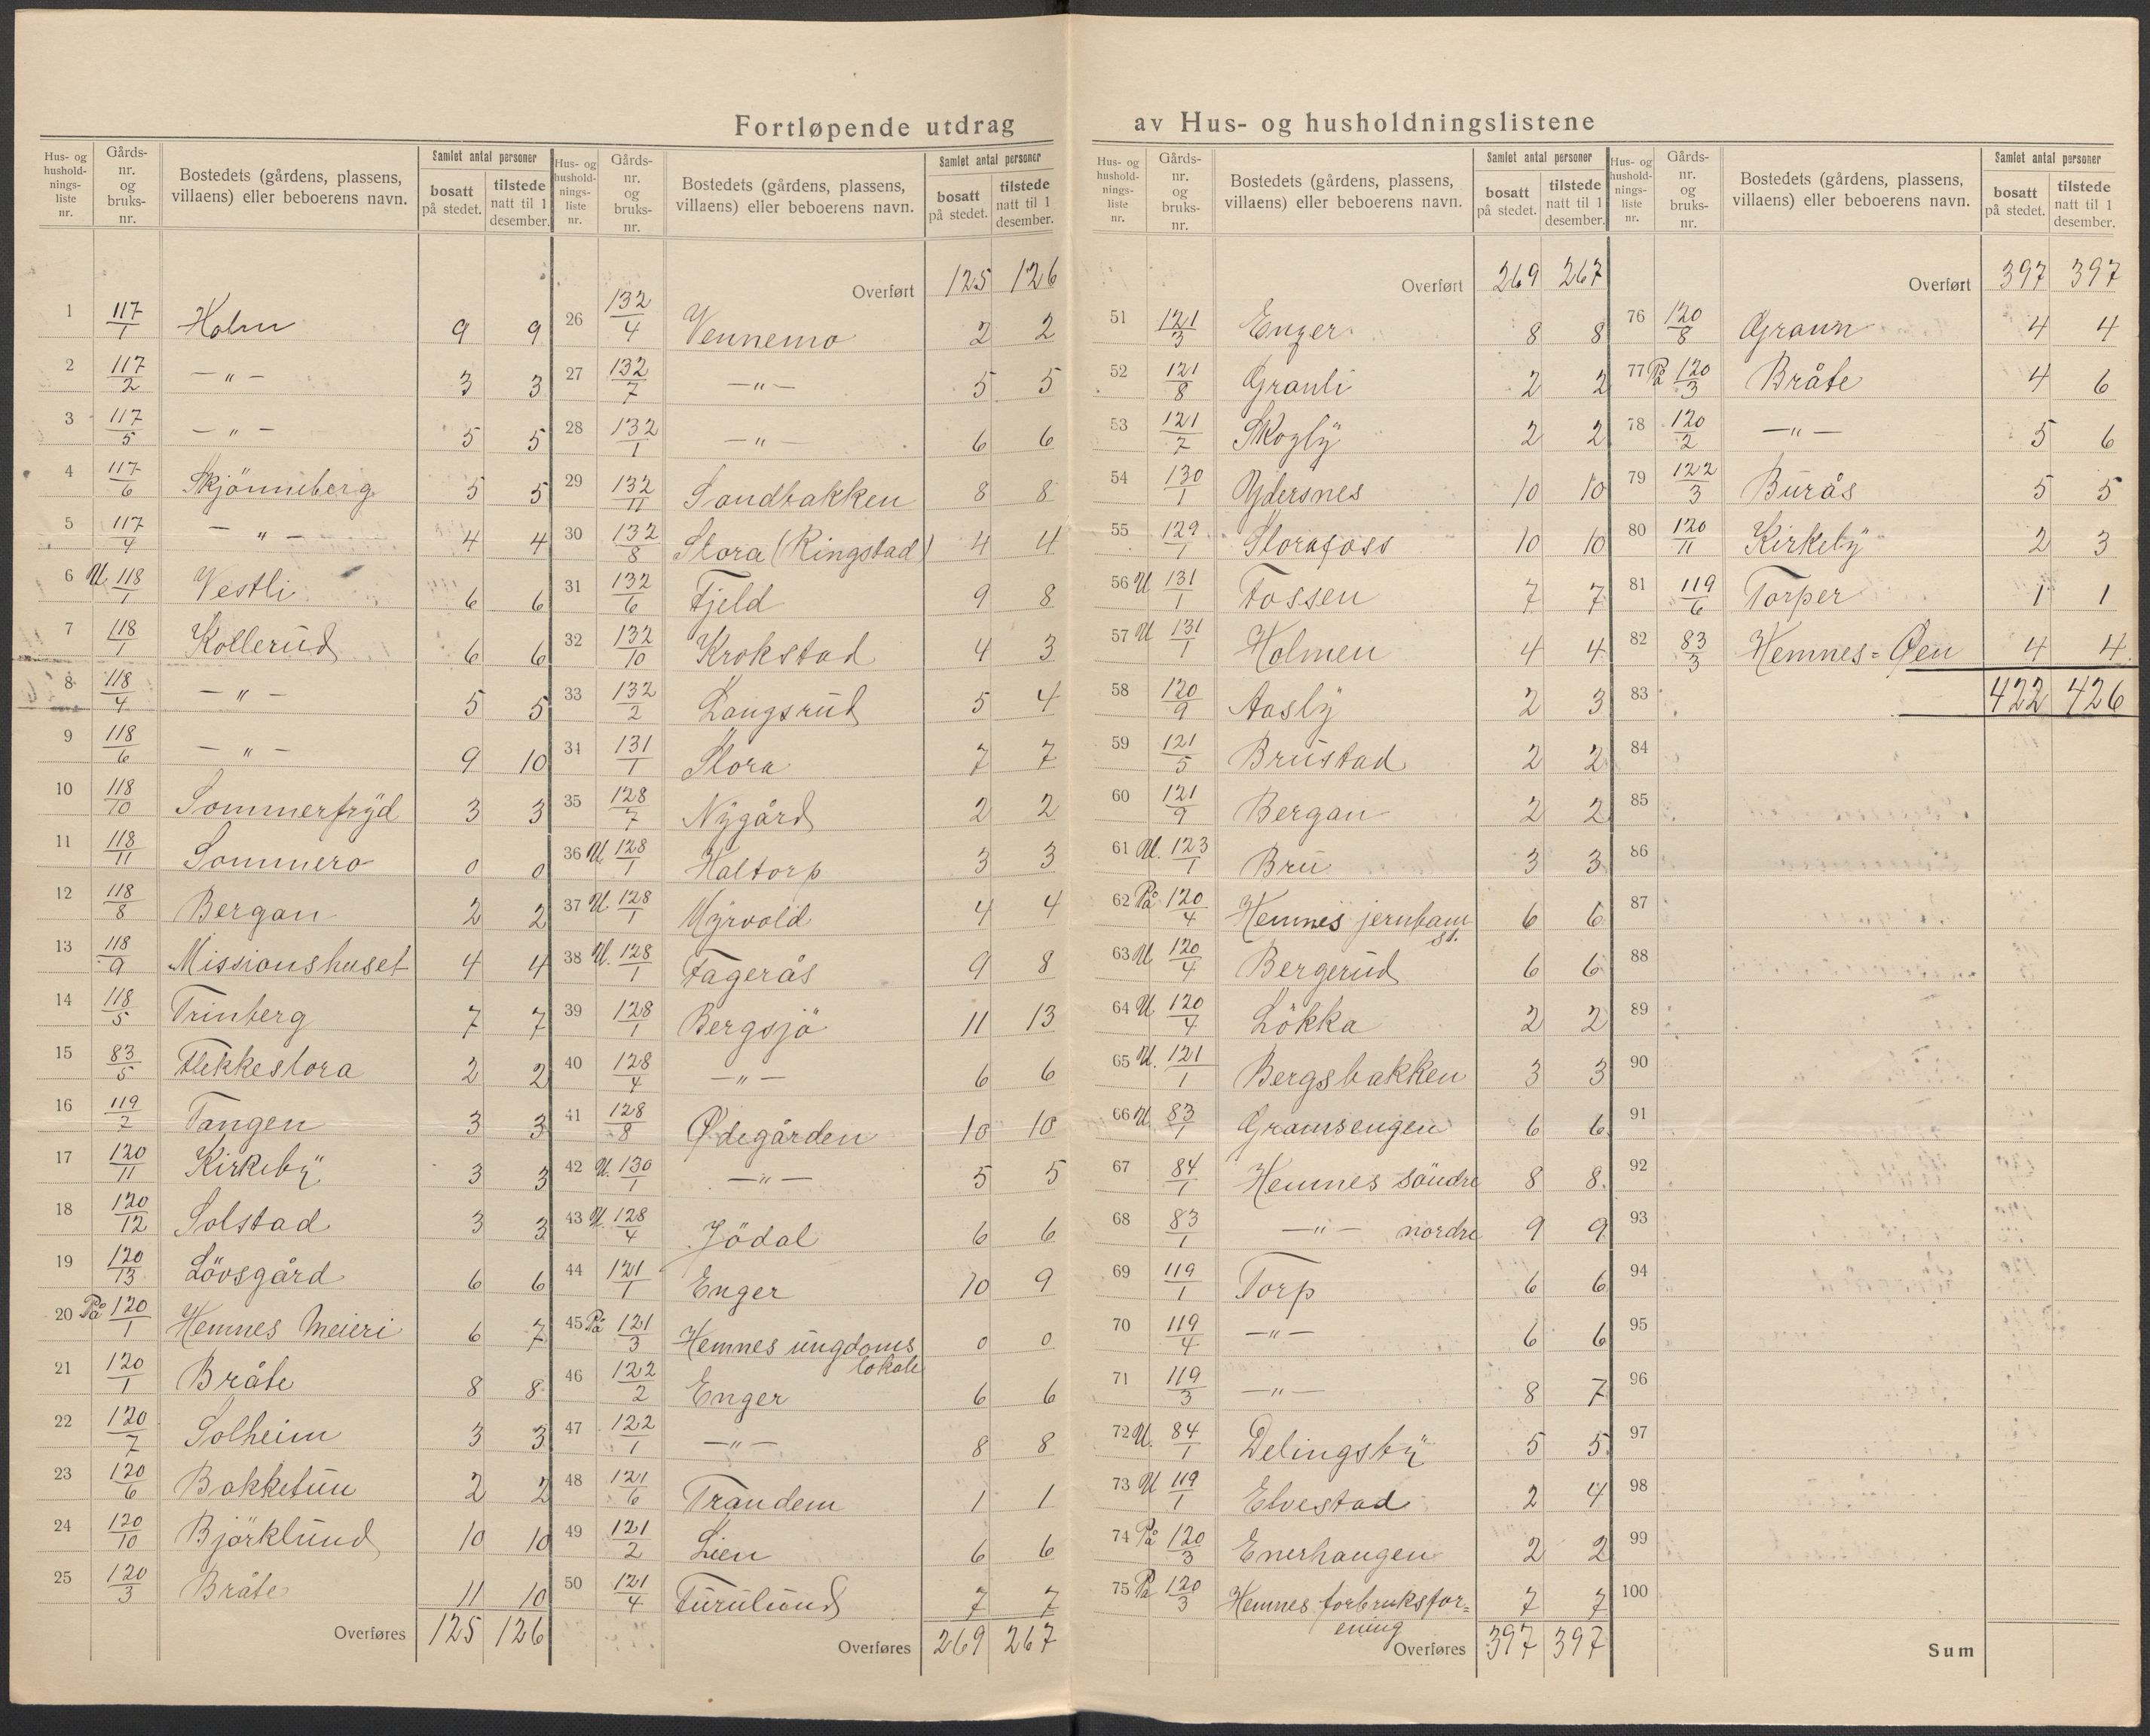 Fortløpende utdrag av Hus- og husholdningslistene
Hus- og husholdnings-liste nr. | Gårds-nr. og bruks-nr. | Bostedets (gårdens, plassens, villaens) eller beboerens navn. | Samlet antal personer: bosatt på stedet. | tilstede natt til 1 desember.
1 117/1 Holm 9 9
2 117/2 —"— 3 3
3 117/5 —"— 5 5
4 117/6 Skjönneberg 5 5
5 117/4 —"— 4 4
6 U. 118/1 Vestli 6 6
7 118/1 Kollerud 6 6
8 118/4 —"— 5 5
9 118/6 —"— 9 10
10 118/10 Sommerfryd 3 3
11 118/11 Sommero 0 0
12 118/8 Bergan 2 2
13 118/9 Missionshuset 4 4
14 118/5 Trinberg 7 7
15 83/5 Flekkeslora 2 2
16 119/2 Tangen 3 3
17 120/11 Kirkeby 3 3
18 120/12 Solstad 3 3
19 120/13 Lövsgård 6 6
20 På 120/1 Hemnes Meieri 6 7
21 120/1 Bråte 8 8
22 120/7 Solheim 3 3
23 120/6 Bakketun 2 2
24 120/10 Björklund 10 10
25 120/3 Bråte 11 10
Overføres 125 126
Hus- og husholdnings-liste nr. | Gårds-nr. og bruks-nr. | Bostedets (gårdens, plassens, villaens) eller beboerens navn. | Samlet antal personer: bosatt på stedet. | tilstede natt til 1 desember.
Overført 125 126
26 132/4 Vennemo 2 2
27 132/7 —"— 5 5
28 132/1 —"— 6 6
29 132/11 Sandbakken 8 8
30 132/8 Slora (Ringstad) 4 4
31 132/6 Fjeld 9 8
32 132/10 Krokstad 4 3
33 132/2 Langsrud 5 4
34 131/1 Slora 7 7
35 128/7 Nygård 2 2
36 U. 128/1 Haltorp 3 3
37 U. 128/1 Myrvold 4 4
38 U. 128/1 Fagerås 9 8
39 128/1 Bergsjö 11 13
40 128/4 —"— 6 6
41 128/8 Ødegården 10 10
42 U. 130/1 —"— 5 5
43 U. 128/4 Jödal 6 6
44 121/1 Enger 10 9
45 På 121/3 Hemnes ungdoms lokale 0 0
46 122/2 Enger 6 6
47 122/1 —"— 8 8
48 121/6 Trandem 1 1
49 121/2 Lien 6 6
50 121/4 Furulund 7 7
Overføres 269 267
Hus- og husholdnings-liste nr. | Gårds-nr. og bruks-nr. | Bostedets (gårdens, plassens, villaens) eller beboerens navn. | Samlet antal personer: bosatt på stedet. | tilstede natt til 1 desember.
Overført 269 267
51 121/3 Enger 8 8
52 121/8 Granli 2 2
53 121/7 Skogly 2 2
54 130/1 Ydersnes 10 10
55 129/1 Slorafoss 10 10
56 U 131/1 Fossen 7 7
57 U 131/1 Holmen 4 4
58 120/9 Aasly 2 3
59 121/5 Brustad 2 2
60 121/9 Bergan 2 2
61 U. 123/1 Bru 3 3
62 På 120/4 Hemnes jernban st. 6 6
63 U 120/4 Bergerud 6 6
64 U 120/4 Lökka 2 2
65 U. 121/1 Bergsbakken 3 3
66 U. 83/1 Gramsengen 6 6
67 84/1 Hemnes söndre 8 8
68 83/1 —"— nordre 9 9
69 119/1 Torp 6 6
70 119/4 —"— 6 6
71 119/3 —"— 8 7
72 U. 84/1 Delingsby 5 5
73 U 119/1 Elvestad 2 4
74 På 120/3 Enerhaugen 2 2
75 På 120/3 Hemnes forbruksfor=ening 7 7
Overføres 397 397
Hus- og husholdnings-liste nr. | Gårds-nr. og bruks-nr. | Bostedets (gårdens, plassens, villaens) eller beboerens navn. | Samlet antal personer: bosatt på stedet. | tilstede natt til 1 desember.
Overført 397 397
76 120/8 Graun 4 4
77 På 120/3 Bråte 4 6
78 120/2 —"— 5 6
79 122/3 Burås 5 5
80 120/11 Kirkeby 2 3
81 119/6 Torper 1 1
82 83/3 Hemnes=Øen 4 4
83 422 426
84
85
86
87
88
89
90
91
92
93
94
95
96
97
98
99
100
Sum